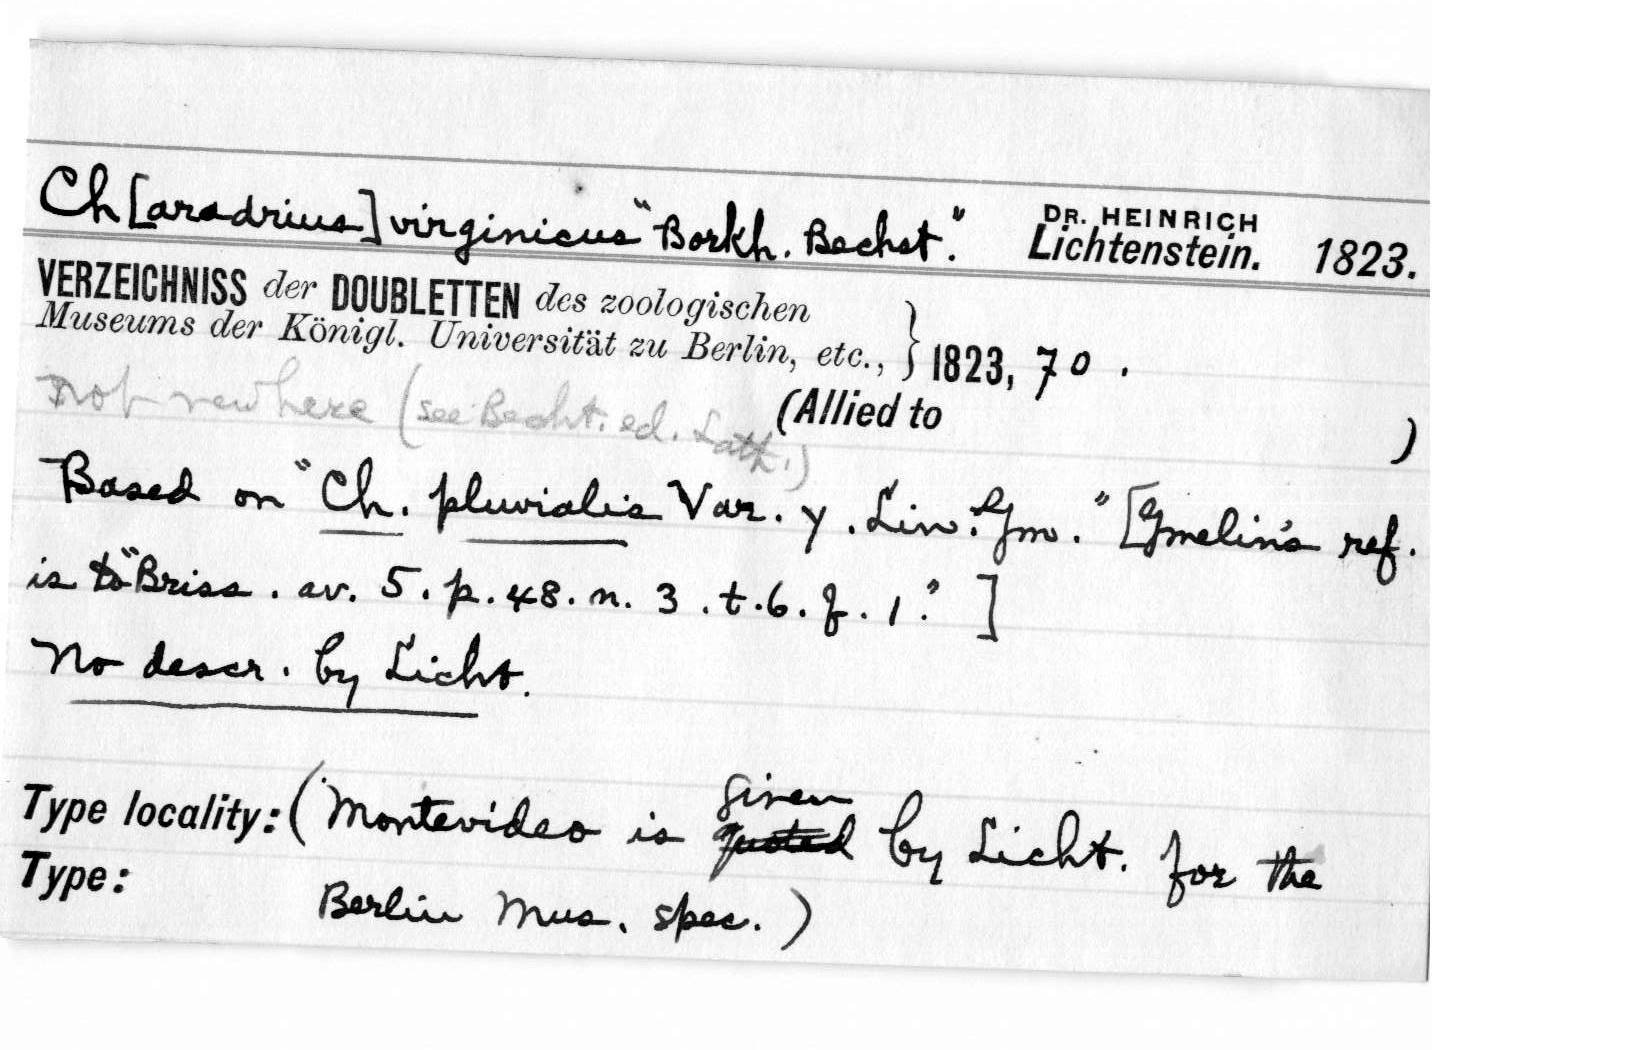 Ch[aradrius] virginicus "Borkh. Bechst." DR. HEINRICH Lichtenstein. 1823.
VERZEICHNISS der DOUBLETTEN des zoologischen
Museums der Königl. Universität zu Berlin, etc., } 1823, 70.
not new here (see Becht. ed. Lath.) (Allied to )
Based on "Ch. pluvialis Var. γ. Lin. Gm." [Gmelin's ref.
is to "Briss. av. 5. p. 48. n. 3. t. 6. f. 1." ]
No descr. by Licht.
given
Type locality: (Montevideo is quoted by Licht. for the
Type: Berlin Mus. spec.)